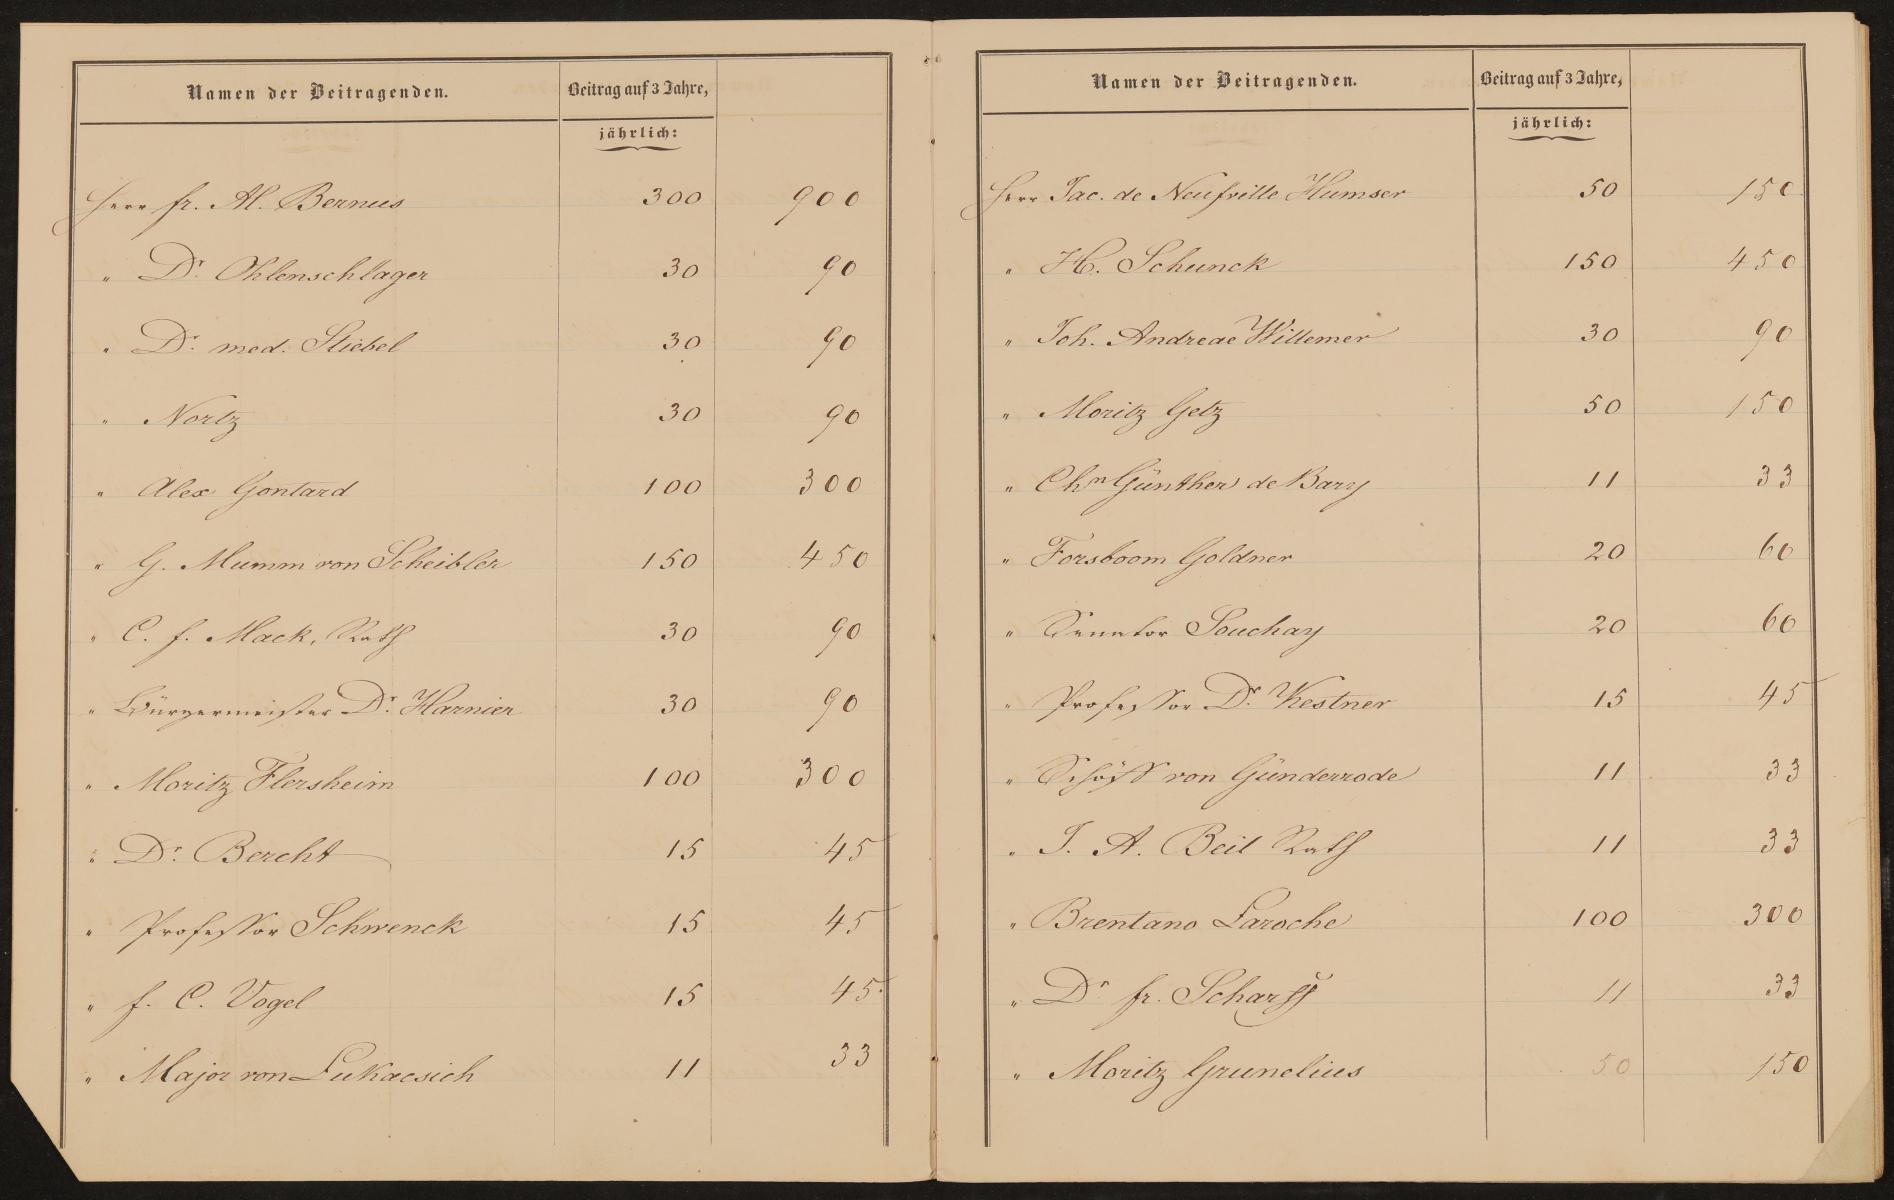 Namen der Beitragenden. Beitrag auf 3 Jahre,
jährlich:
Herr fr. Al. Bernus 300 900
" Dr. Ohlenschlager 30 90
" Dr. med. Stiebel 30 90
" Nortz 30 90
" Alex Gontard 100 300
" G. Mumm von Scheibler 150 450
" C. f. Mack, Rath 30 90
" Bürgermeister Dr. Harnier 30 90
" Moritz Flersheim 100 300
" Dr. Bercht 15 45
" Professor Schwenck 15 45
" f. C. Vogel 15 45
" Major von Lukacsich 11 33
Namen der Beitragenden. Beitrag auf 3 Jahre,
jährlich:
Herr Jac. de Neufville Humser 50 150
" H. Schunck 150 450
" Joh. Andreae Willemer 30 90
" Moritz Getz 50 150
" Chn Günther de Bary 11 33
" Forsboom Goldner 20 60
" Senator Souchay 20 60
" Professor Dr. Kestner 15 45
" Schöff von Günderrode 11 33
" J. A. Beil Rath 11 33
" Brentano Laroche 100 300
" Dr fr. Scharff 11 33
" Moritz Grunelius 50 150